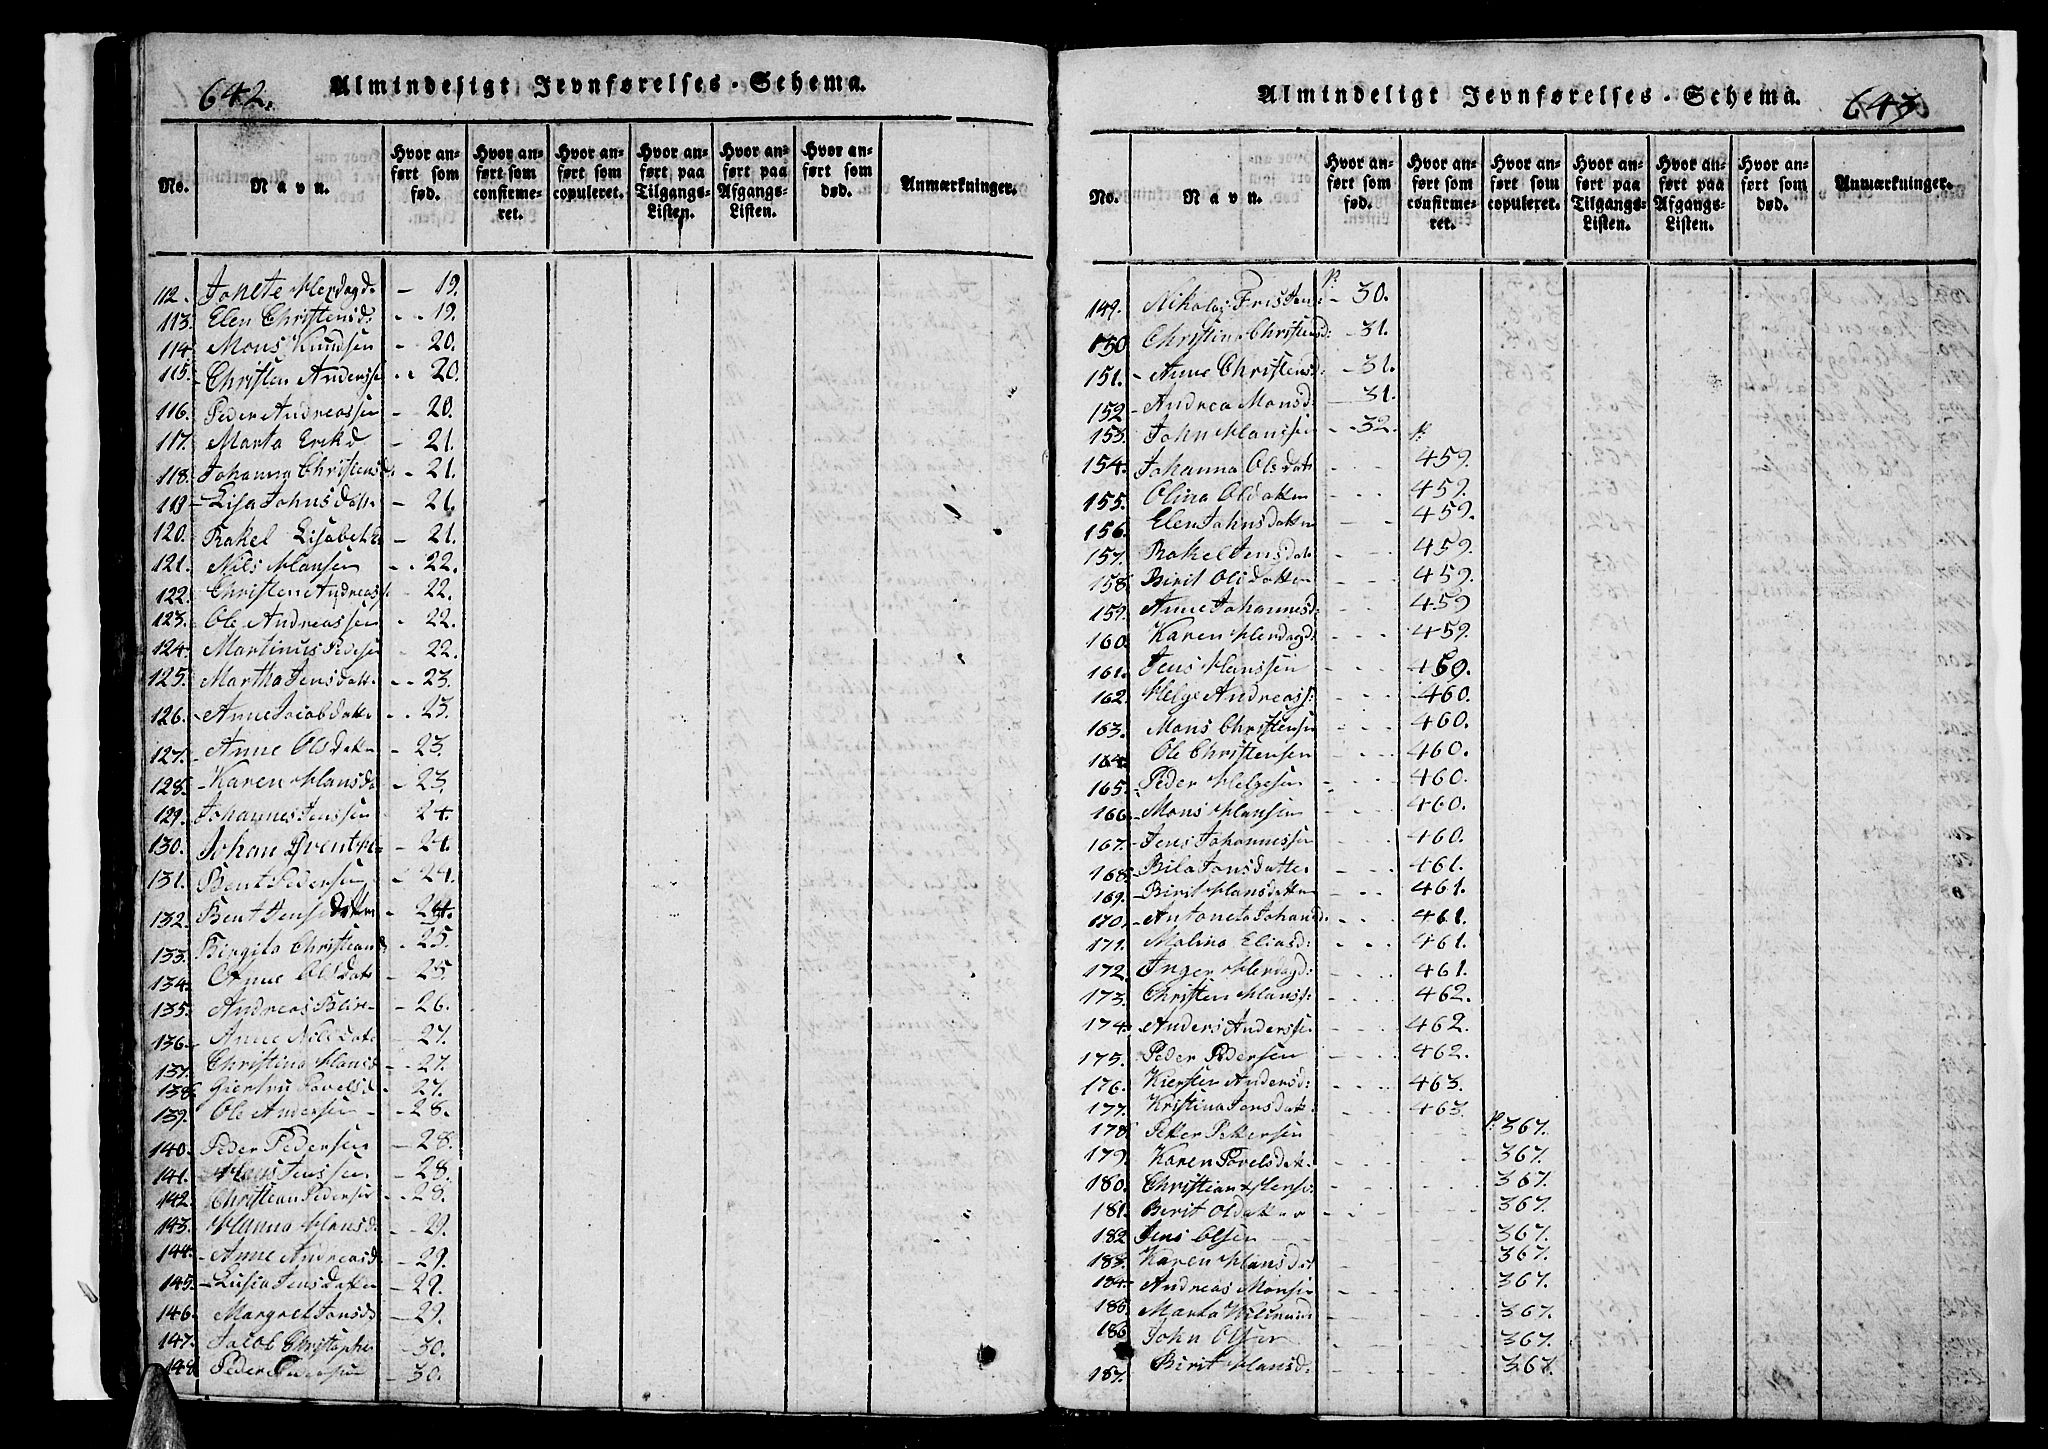 642.
Almindeligt Jevnførelses-Schema.
No.
Navn.
Hvor anført som fød.
Hvor anført som confirmeret.
Hvor anført som copuleret.
Hvor anført paa Tilgangs-Listen.
Hvor anført paa Afgangs-Listen.
Hvor anført som død.
Anmærkninger.
112. Jonete Herdagd: - 19.
113. Elen Christensd: - 19.
114. Mons Knudsen - 20.
115. Christen Anderssen - 20.
116. Peder Andreassen - 20.
117. Marta Erikd - 21.
118. Johanna Christensd: - 21.
119. Lisa Johnsdatt: - 21.
120. Rakel Lisabet - 21.
121. Nils Hansen - 22.
122. Christen Andreass - 22.
123. Ole Andreassen - 22.
124. Martinus Pedersen - 22.
125. Martha Jensdatt: - 23.
126. Anne Jacobdatt - 23.
127. Anne Olsdatter - 23.
128. Karen Hansda - 23.
129. Johannes Jenssen - 24.
130. Johan - 24.
131. Bent Pedersen - 24.
132. Bent Jens datter - 24.
133. Birgita Christians - 25.
134. Anne Olsdatt - 25.
135. Andreas - 26.
136. Anne Nilsdatt - 27.
137. Christina Hansd - 27.
138. Giertru Povelsd - 27.
139. Ole Andersen - 28.
140. Peder Pedersen - 28.
141. Hans Jenssen - 28.
142. Christian Pedersen - 28.
143. Hanna Hansd: - 29.
144. Anne Andreasd - 29.
145. Lusia Jensdatter - 29.
146. Margret Jonsd - 29.
147. Jacob Christophe - 30.
148. Peder - 30.
Almindeligt Jevnførelses-Schema.
643
No.
Navn.
Hvor anført som fød.
Hvor anført som confirmeret.
Hvor anført som copuleret.
Hvor anført paa Tilgangs-Listen.
Hvor anført paa Afgangs-Listen.
Hvor anført som død.
Anmærkninger.
149. Nikolaj p. 30.
150 Christina Christensd: - 31.
151. Anne Christensd: - 31.
152 Andrea Monsd - 31.
153. John Hanssen - 32.
154. Johanna Olsdatt p. 459.
155. Olina Oldatter 459.
156. Elen Johnsdatter 459.
157. Rakel Jensdatt 459.
158. Birit Olsdatter 459.
159. Anne Johannesd: 459
160. Karen Herdagd: 459.
161. Jens Hanssen 460.
162. Helge Andreass: 460.
163. Mons Christensen 460.
164. Ole Christensen 460.
165. Peder Helgesen 460.
166. Mons Hansen 460.
167. Jens Johannessen 460.
168. Jonsdatter 461.
169. Birit Hansdatter 461.
170. Antonete Johansd: 461.
171. Malina Eliasd: 461.
172. Inger Herdagd: 461.
173. Christen Hanss: 462.
174. Anders Anderssen 462.
175. Peder Pedersen 462.
176. Kiersten Andersd: 463.
177. Kristina Jensdatt: 463.
178. Petter Pettersen p. 367.
179. Karen Povelsdatt. 367.
180. Christian 367.
181. Berit Oldatter 367.
182 Jens Olsen 367.
183. Karen Hansdat 367.
184. Andreas Monsen 367.
185 Marta 367.
186 John Olsen 367.
187. Birit Hansd: 367.